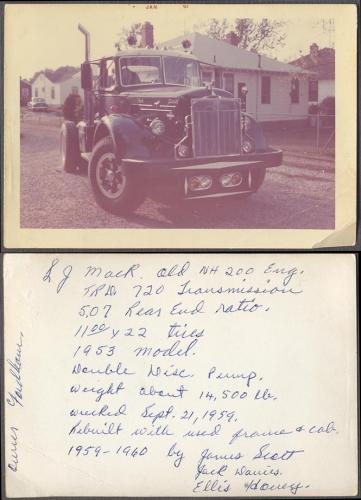 JAN 61
L J Mack. old NH 200 Eng.
720 Transmission
5.07 Rear End ratio.
11 00 x 22 tires
1953 model.
Double Disc. Pump.
weight about 14,500 lb.
wrecked Sept. 21, 1959.
Rebuilt with used frame & cab.
1959-1960 by James Scott
Jack Davies.
Ellis
owner